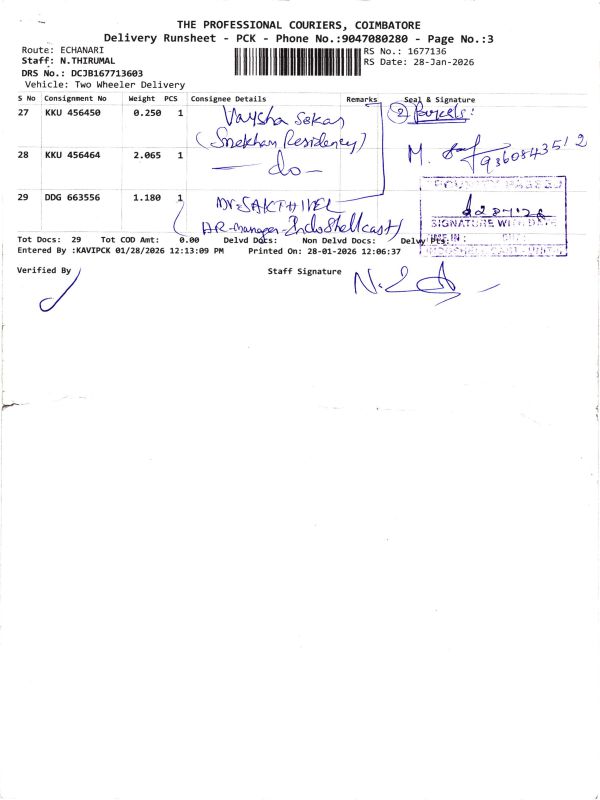 THE PROFESSIONAL COURIERS, COIMBATORE
Delivery Runsheet - PCK - Phone No.:9047080280 - Page No.:3
Route: ECHANARI
RS No.: 1677136
Staff: N.THIRUMAL
RS Date: 28-Jan-2026
DRS No.: DCJB167713603
Vehicle: Two Wheeler Delivery
S No Consignment No Weight PCS Consignee Details Remarks Seal & Signature
27 KKU 456450 0.250 1 Vaysha Sekar 2 Parcels:
(Snekhan Residency)
28 KKU 456464 2.065 1 — do — M.
29 DDG 663556 1.180 1 Mr. SAKTHIVEL
HR-Manager-IndoShellcast)
SIGNATURE WITH DATE
Tot Docs: 29 Tot COD Amt: 0.00 Delvd Docs: Non Delvd Docs: Delvy Pts:
Entered By :KAVIPCK 01/28/2026 12:13:09 PM Printed On: 28-01-2026 12:06:37
Verified By Staff Signature